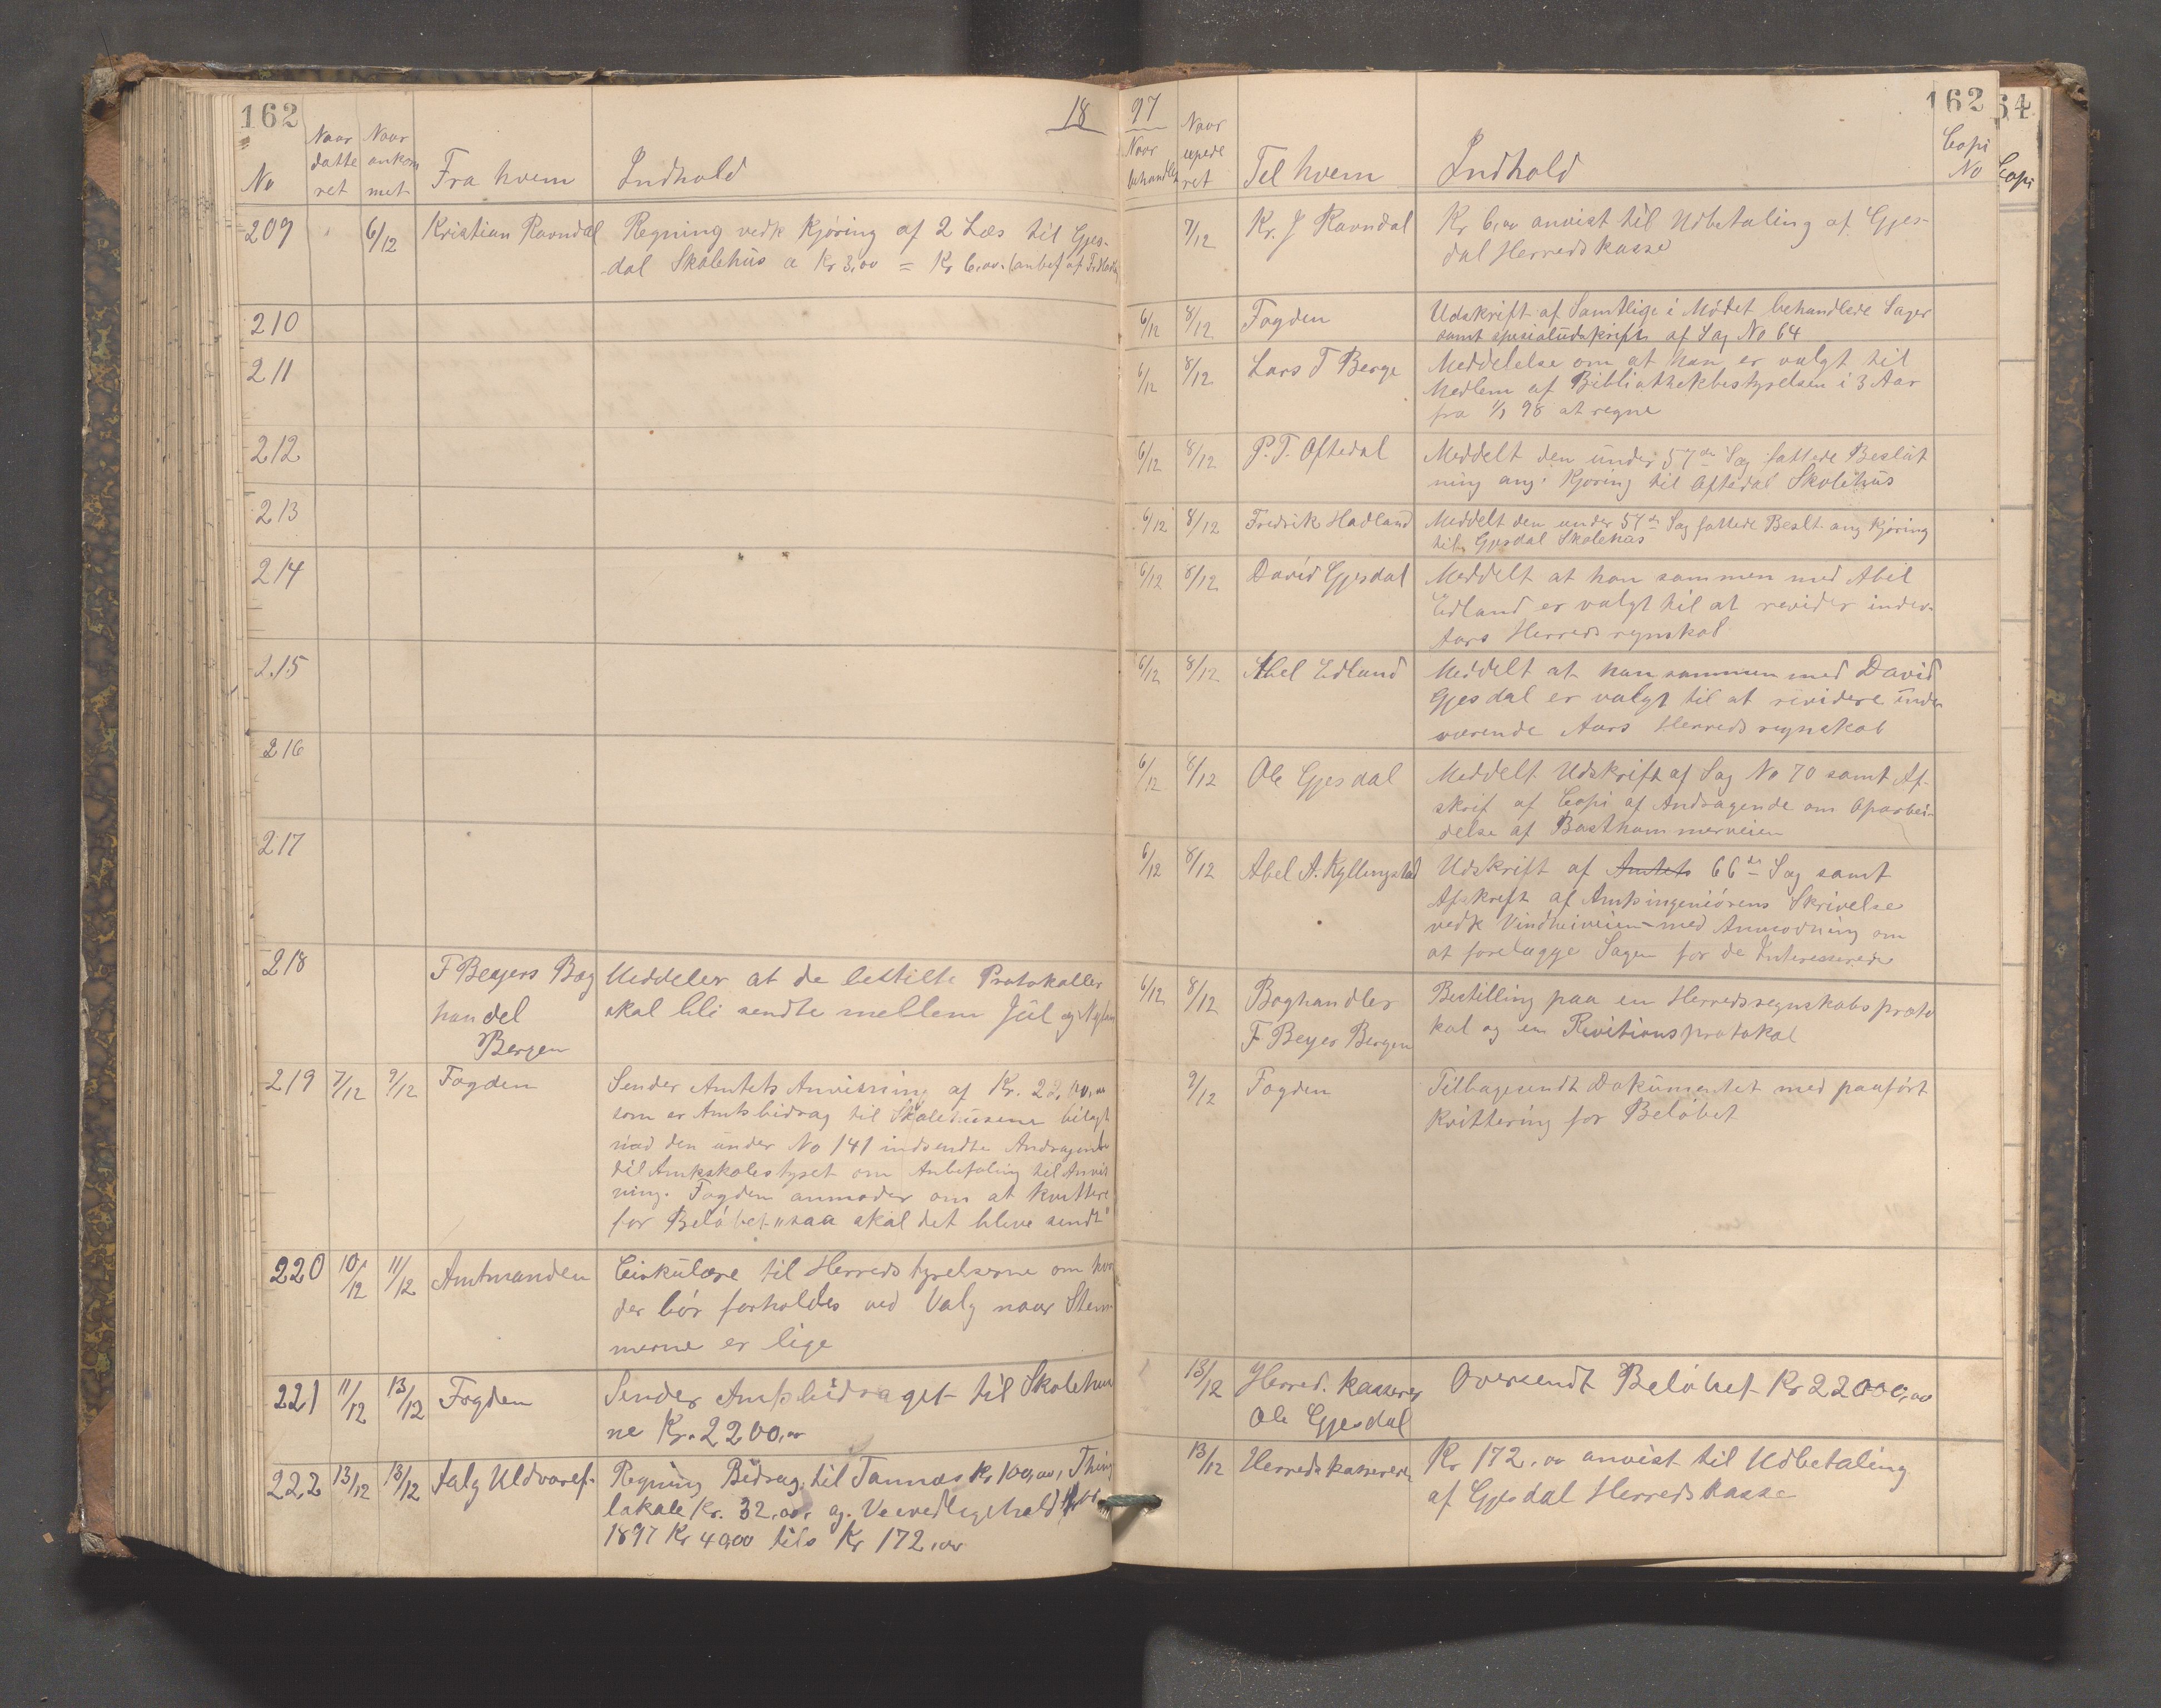 162
18
No
Naar datte ret
Naar ankom met
Fra hvem
Indhold
209 6/12 Kristian Ravndal Regning vedk Kjøring af 2 Læs til Gjes-
dal Skolehus a Kr 3,00 = Kr 6,00 (anbef af
210
211
212
213
214
215
216
217
218 F Beyers Bog Meddeler at de bestilte Protokoller
handel skal bli sendte mellem Jul og Nytaar
Bergen
219 7/12 9/12 Fogden Sender Amtets Anvisning af Kr.
som er Amtsbidrag til Skolehusene bilagt
med den under No 141 indsendte Andragende
til Amtsskolestyret om Anbefaling til Anvis
ning. Fogden anmoder om at kvittere
for Beløbet "saa skal det blive sendt"
220 10/12 11/12 Amtmanden Cirkulære til Herredstyrelserne om hvor
der bør forholdes ved Valg naar Stem-
merne er lige
221 11/12 13/12 Fogden Sender Amtsbidraget til Skolehuse
ne Kr. 2200,00
222 13/12 13/12 Regning Bidrag til Tannæs Kr 100,00, Thing
lokale Kr. 32,00, og Veivedligehold for
1897 Kr 40,00 tils Kr 172,00
97
162
64
Naar behandlet
Naar expede ret
Til hvem
Indhold
Copi No
Copi
7/12 Kr. J Ravndal Kr 6,00 anvist til Udbetaling af Gjes-
dal Herredskasse
6/12 8/12 Fogden Udskrift af Samtlige i Mødet behandlede Sager
samt spesialudskrift af Sag No 64
6/12 8/12 Lars T Berge Meddelelse om at han er valgt til
Medlem af Bibliothekbestyrelsen i 3 Aar
fra 1/1 98 at regne
6/12 8/12 P. T. Oftedal Meddelt den under 57de Sag fattede Beslut
ning ang. Kjøring til Oftedal Skolehus
6/12 8/12 Fredrik Hadland Meddelt den under 57de Sag fattede Beslt ang Kjøring
til Gjesdal Skolehus
6/12 8/12 David Gjesdal Meddelt at han sammen med Abel
Edland er valgt til at revider indev.
Aars Herredsregnskab
6/12 8/12 Abel Edland Meddelt at han sammen med David
Gjesdal er valgt til at revidere inde
værende Aars Herredsregnskab
6/12 8/12 Ole Gjesdal Meddelt Udskrift af Sag No 70 samt Af-
skrif af Copi af Andragende om Oparbei-
delse af Basthammerveien
6/12 8/12 Abel A. Kyllingstad Udskrift af Amtets 66de Sag samt
Afskrift af Amtsingeniørens Skrivelse
vedk Vindheiveien med Anmodning om
at forelægge Sagen for de Interesserede
6/12 8/12 Boghandler Bestilling paa en Herredsregnskabsproto
F Beyer Bergen kol og en Revitionsprotokol
9/12 Fogden Tilbagesendt Dokumentet med paaført
Kvittering for Beløbet
13/12 Herred. kasserer Oversendt Beløbet Kr 2200,00
Ole Gjesdal
13/12 Herredskassereren Kr 172,00 anvist til Udbetaling
af Gjesdal Herredskasse